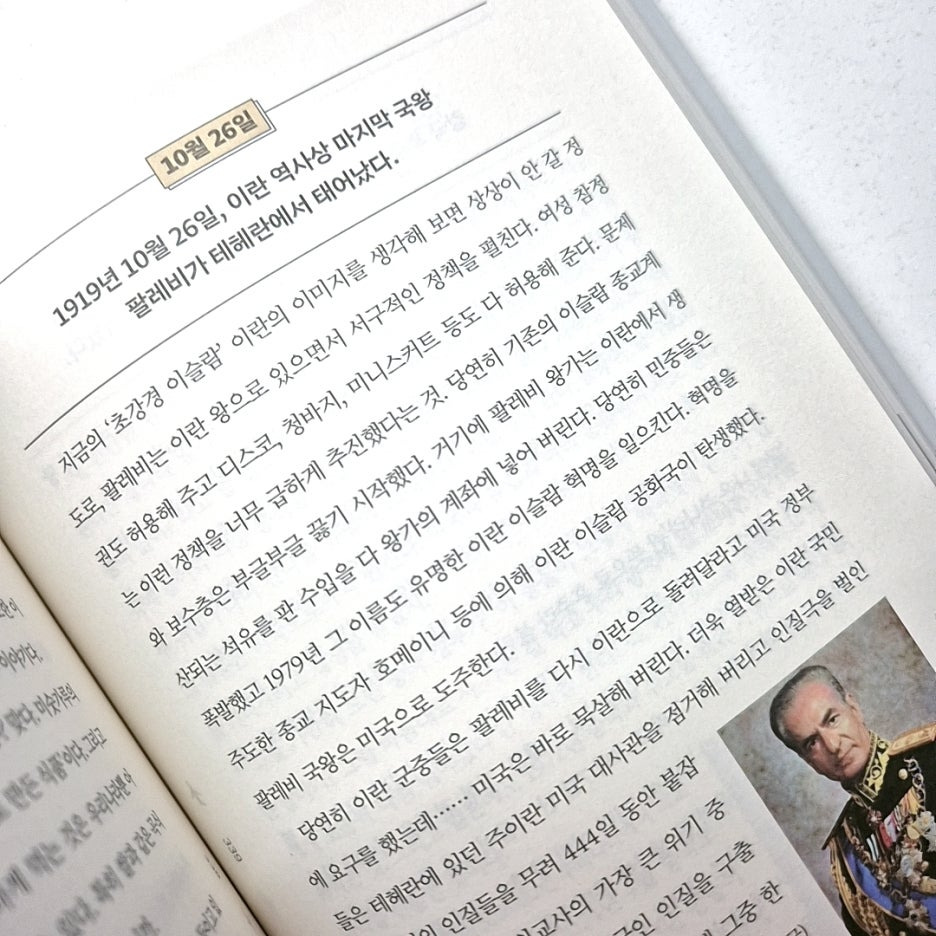 10월 26일
1919년 10월 26일, 이란 역사상 마지막 국왕
팔레비가 테헤란에서 태어났다.
지금의 ‘초강경 이슬람’ 이란의 이미지를 생각해 보면 상상이 안 갈 정
도로, 팔레비는 이란 왕으로 있으면서 서구적인 정책을 펼친다. 여성 참정
권도 허용해 주고 디스코, 청바지, 미니스커트 등도 다 허용해 준다. 문제
는 이런 정책을 너무 급하게 추진했다는 것. 당연히 기존의 이슬람 종교계
와 보수층은 부글부글 끓기 시작했다. 거기에 팔레비 왕가는 이란에서 생
산되는 석유를 판 수입을 다 왕가의 계좌에 넣어 버린다. 당연히 민중들은
폭발했고 1979년 그 이름도 유명한 이란 이슬람 혁명을 일으킨다. 혁명을
주도한 종교 지도자 호메이니 등에 의해 이란 이슬람 공화국이 탄생했다.
팔레비 국왕은 미국으로 도주한다.
당연히 이란 군중들은 팔레비를 다시 이란으로 돌려달라고 미국 정부
에 요구를 했는데…… 미국은 바로 묵살해 버린다. 더욱 열받은 이란 국민
들은 테헤란에 있던 주이란 미국 대사관을 점거해 버리고 인질극을 벌인
인질들을 무려 444일 동안 붙잡
외교사의 가장 큰 위기 중
인질을 구출
그중 한
339
이야기다.
맞다. 미숫가루의
만든 식품’이다. 그리고
먹는 것은 우리나라뿐이
있다. 특히 쌀과 같은 곡식